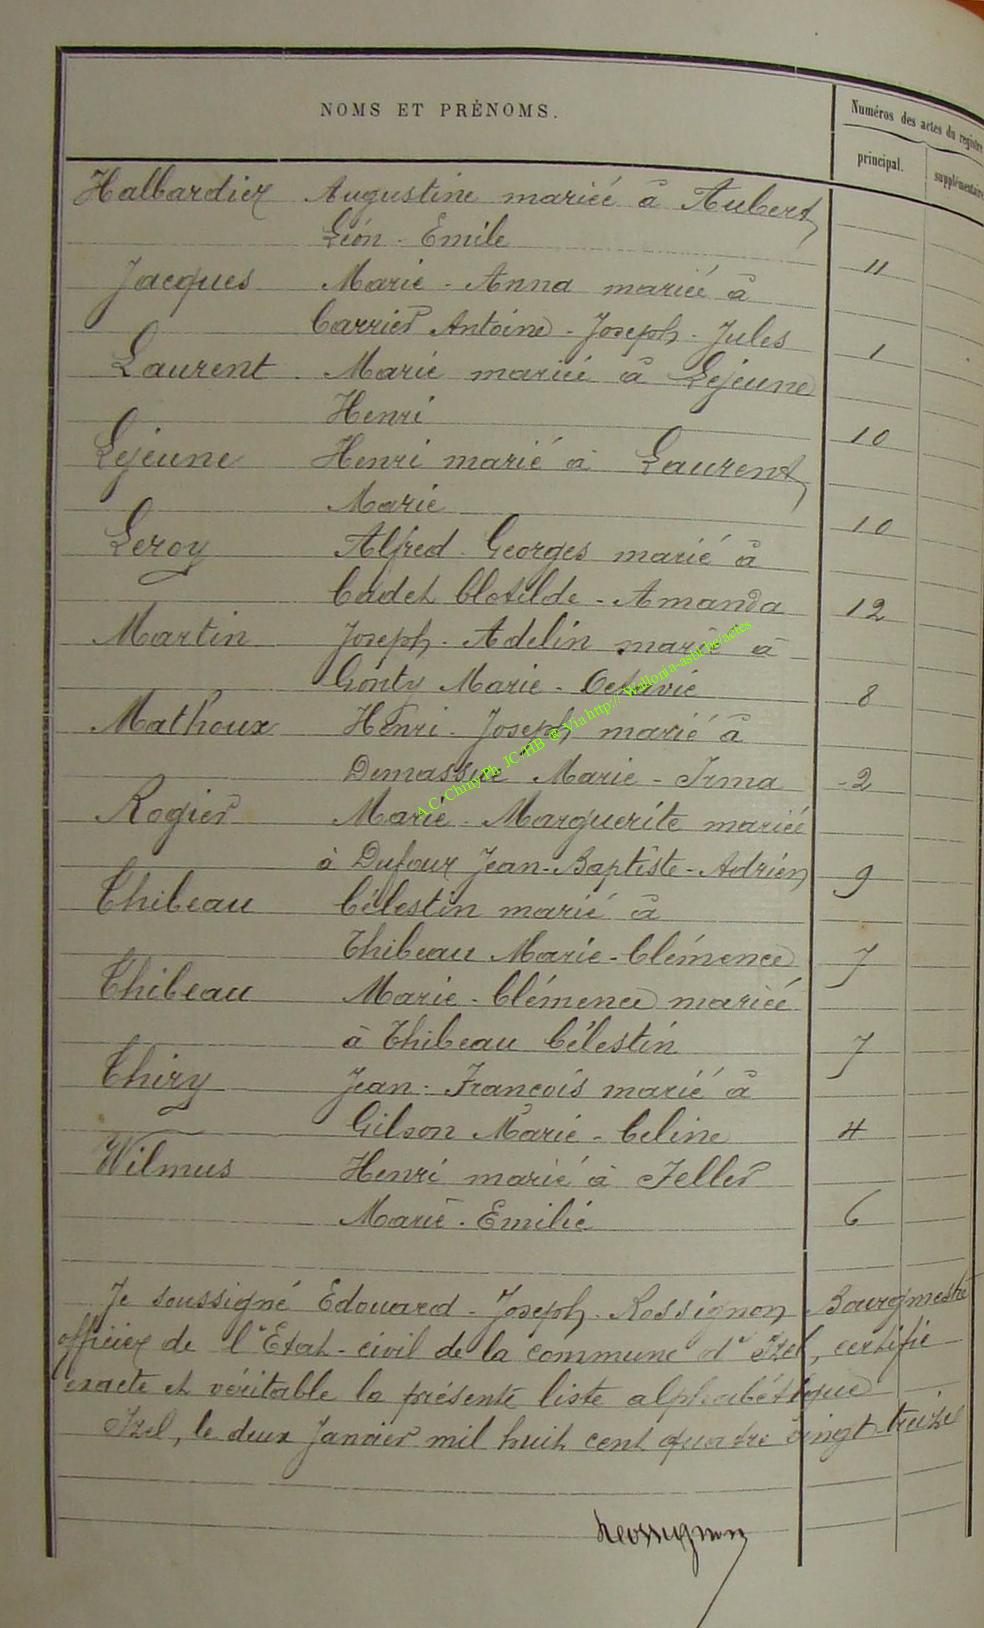 NOMS ET PRÉNOMS.
Numéros des actes du registre
principal.
supplémentaire
Halbardier Augustine mariée à Aubert
Léon - Emile 11
Jacques Marie - Anna mariée à
Carrier Antoine - Joseph - Jules 1
Laurent Marie mariée à Lejeune
Henri 10
Lejeune Henri marié à Laurent
Marie 10
Leroy Alfred - Georges marié à
Cadet Clotilde - Amanda 12
Martin Joseph - Adelin marié à
Gonty Marie - Octavie 8
Mathoux Henri - Joseph marié à
Demasse Marie - Irma 2
Rogier Marie - Marguerite mariée
à Dufour Jean-Baptiste-Adrien 9
Thibeau Célestin marié à
Thibeau Marie - Clémence 7
Thibeau Marie - Clémence mariée
à Thibeau Célestin 7
Thiry Jean - François marié à
Gilson Marie - Celine 4
Wilmus Henri marié à Feller
Marie - Emilie 6
Je soussigné Edouard - Joseph - Rossignon Bourgmestre
officier de l'Etat-civil de la commune d'Izel, certifie
exacte et véritable la présente liste alphabétique
Izel, le deux Janvier mil huit cent quatre vingt-treize
Rossignon
A.C. Chiny Ph. JC-HB @ Via http:// Wallonia-asbl.be/actes